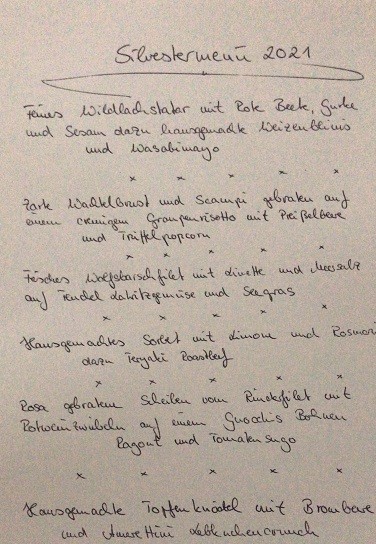 Silvestermenü 2021
Feines Wildlachstatar mit Rote Beete, Gurke
und Sesam dazu hausgemachte Weizenblinis
und Wasabimayo
x x x x x
Zarte Wachtelbrust und Scampi gebraten auf
einem cremigem Graupenrisotto mit Preißelbeere
und Trüffelpopcorn
x x x x x
Frisches Wolfsbarschfilet mit Limette und Meersalz
auf Fenchel Lakritzgemüse und Seegras
x x x x x
Hausgemachtes Sorbet mit Limone und Rosmari
dazu Teryaki Roastbeef
x x x x x
Rosa gebratene Scheiben vom Rinderfilet mit
Rotweinzwiebeln auf einem Gnocchis Bohnen
Ragout und Tomatensugo
x x x x x
Hausgemachte Topfenknödel mit Brombeere
und Amarettini Lebkuchencrunch